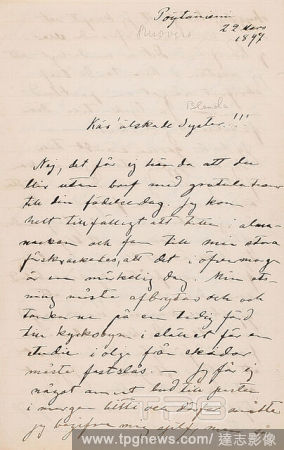 Pöytäniemi
22 Mars
Ruovesi
1897
Blenda
Kär' älskade Syster!!!
Nej, det får ej hända att du
blir utan bref med gratulationer
till din födelsedag. Jag kom
helt tillfälligt att titta i alma-
nackan och fann till min stora
förskräckelse, att det i öfvermorgon
är en märkelig dag. Min
ning måste afbrytas och
tankarne på en tidig färd
till kyrkobyn i stället för en
studie i olja från
måste fastslås. — Jag får ej
något annat bud till posten
i morgon bitti och derför måste
jag begifva mig sjelf
www.tpgnews.com / 達志影像